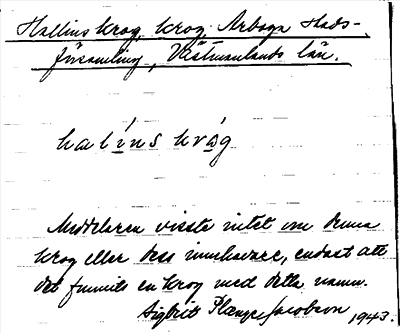 Hallins krog, krog, Arboga stads-
församling, Västmanlands län.
halins krög
Meddelaren visste intet om denna
krog eller dess innehavare, endast att
det funnits en krog med detta namn.
Sigbrit Plænge Jacobson 1943.